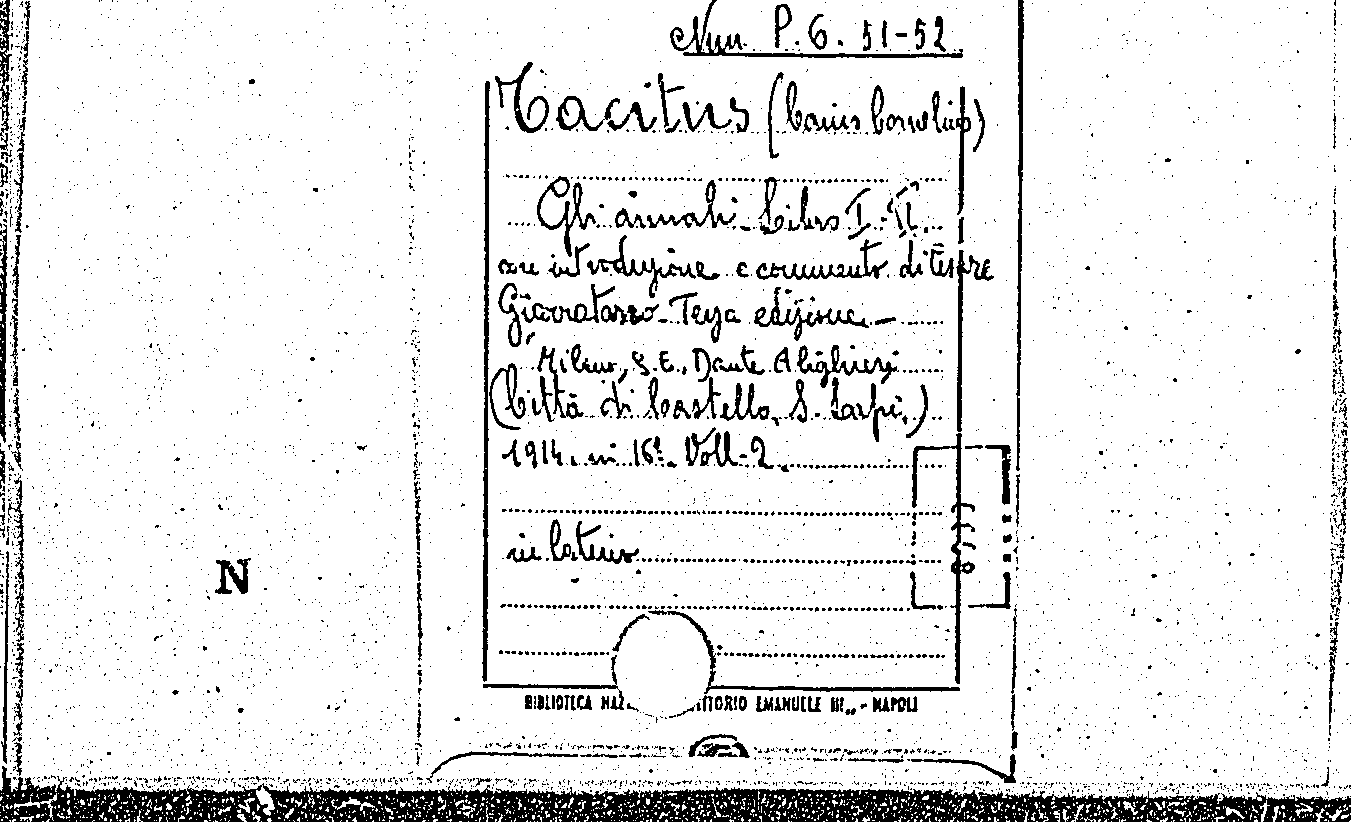 Nuu P. 6. 51-52
Tacitus (Caius Cornelius)
Gli annali. Libro I-II.
con introduzione e commento di Cesare
Giarratano. Terza edizione. —
Milano, S. E. Dante Alighieri
(Città di Castello, S. Lapi.)
1914. in 16°. Voll-2.
in latino
N
BIBLIOTECA NAZ ITTORIO EMANUELE III„ - NAPOLI